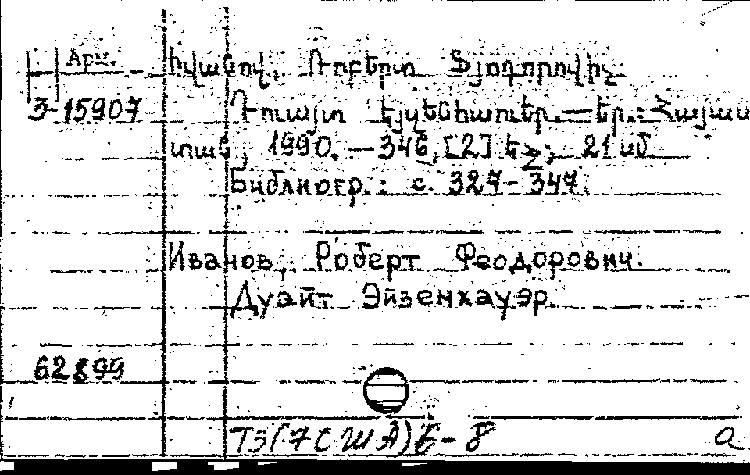 Арм.
Իվանով, Ռոբերտ Ֆյոդորովիչ
3-15907
Դուայտ Էյզենհաուեր.—Եր.: Հայաս
տան, 1990.—346, [2] էջ; 21 սմ
Библиогр.: с. 327-347.
Иванов, Роберт Феодорович.
Дуайт Эйзенхауэр.
62899
Т3(7США)6-8 а